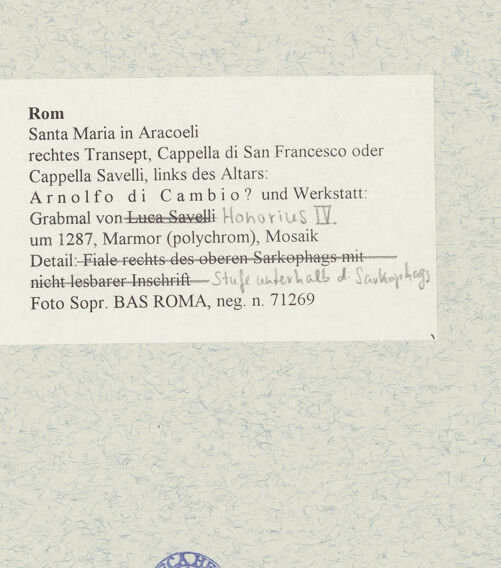 Rom
Santa Maria in Aracoeli
rechtes Transept, Cappella di San Francesco oder
Cappella Savelli, links des Altars:
Arnolfo di Cambio? und Werkstatt:
Grabmal von Luca Savelli Honorius IV.
um 1287, Marmor (polychrom), Mosaik
Detail: Fiale rechts des oberen Sarkophags mit
nicht lesbarer Inschrift Stufe unterhalb d. Sarkophags
Foto Sopr. BAS ROMA, neg. n. 71269